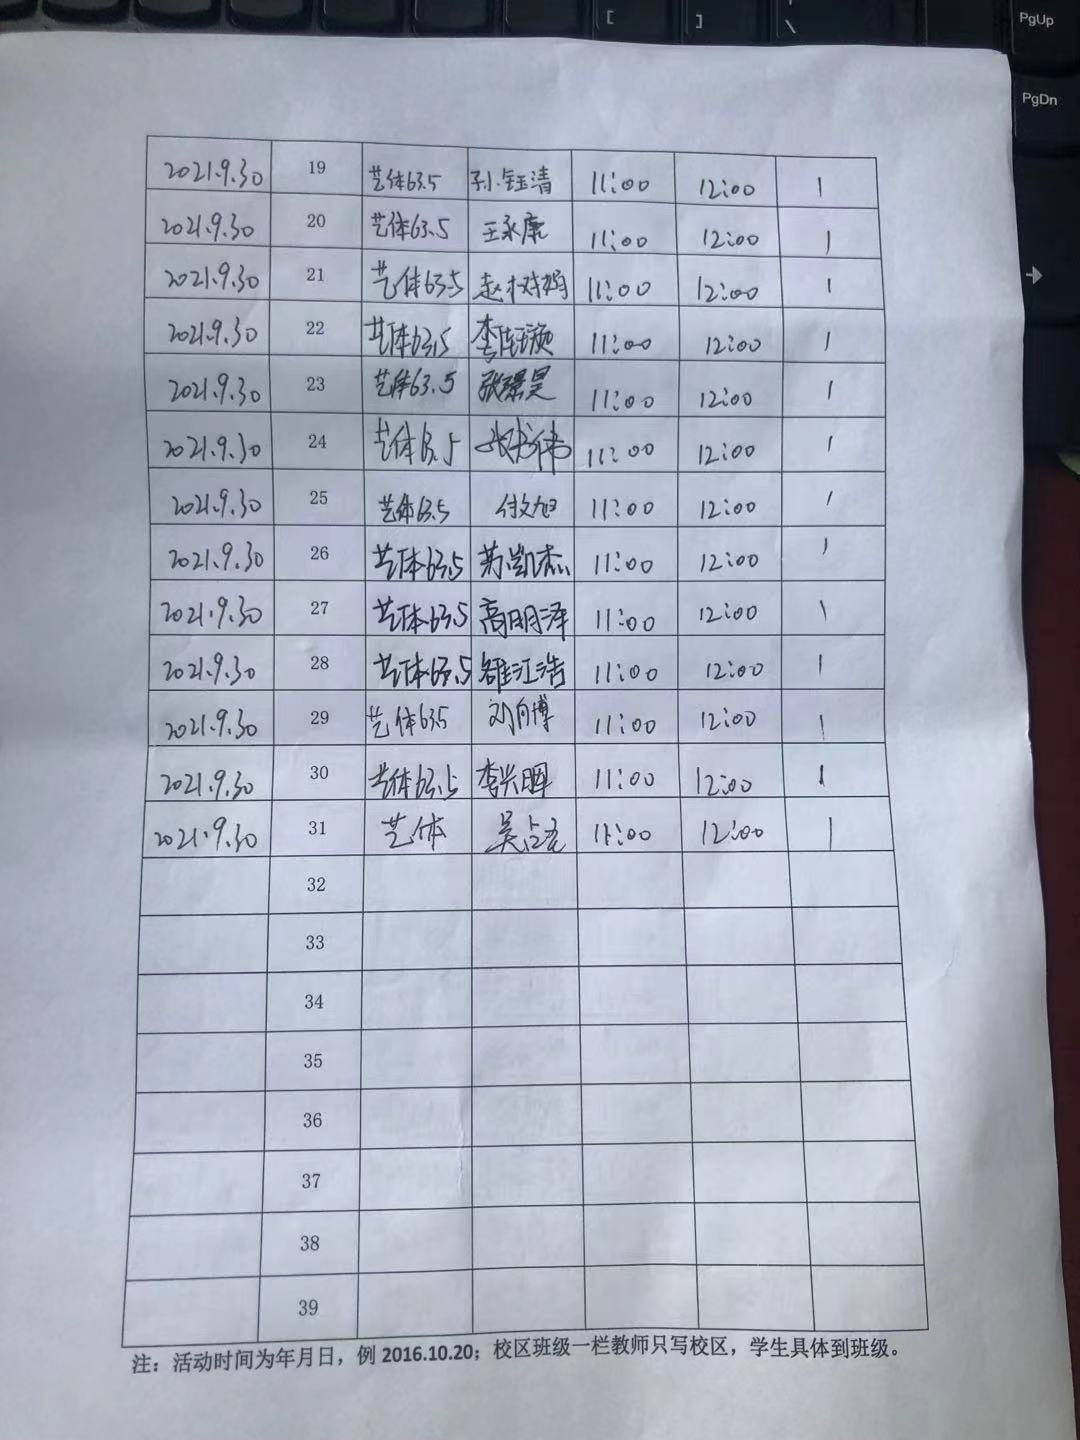 [
]
\
PgUp
PgDn
2021.9.30 19 艺体63.5 孙钰清 11:00 12:00 1
2021.9.30 20 艺体63.5 王永康 11:00 12:00 1
2021.9.30 21 艺体63.5 赵 11:00 12:00 1
2021.9.30 22 艺体63.5 李 11:00 12:00 1
2021.9.30 23 艺体63.5 张景昊 11:00 12:00 1
2021.9.30 24 艺体63.5 11:00 12:00 1
2021.9.30 25 艺体63.5 旭 11:00 12:00 1
2021.9.30 26 艺体63.5 凯杰 11:00 12:00 1
2021.9.30 27 艺体63.5 高明泽 11:00 12:00 1
2021.9.30 28 艺体63.5 江浩 11:00 12:00 1
2021.9.30 29 艺体63.5 刘 博 11:00 12:00 1
2021.9.30 30 艺体63.5 李兴晖 11:00 12:00 1
2021.9.30 31 艺体 吴 11:00 12:00 1
32
33
34
35
36
37
38
39
注：活动时间为年月日，例 2016.10.20；校区班级一栏教师只写校区，学生具体到班级。